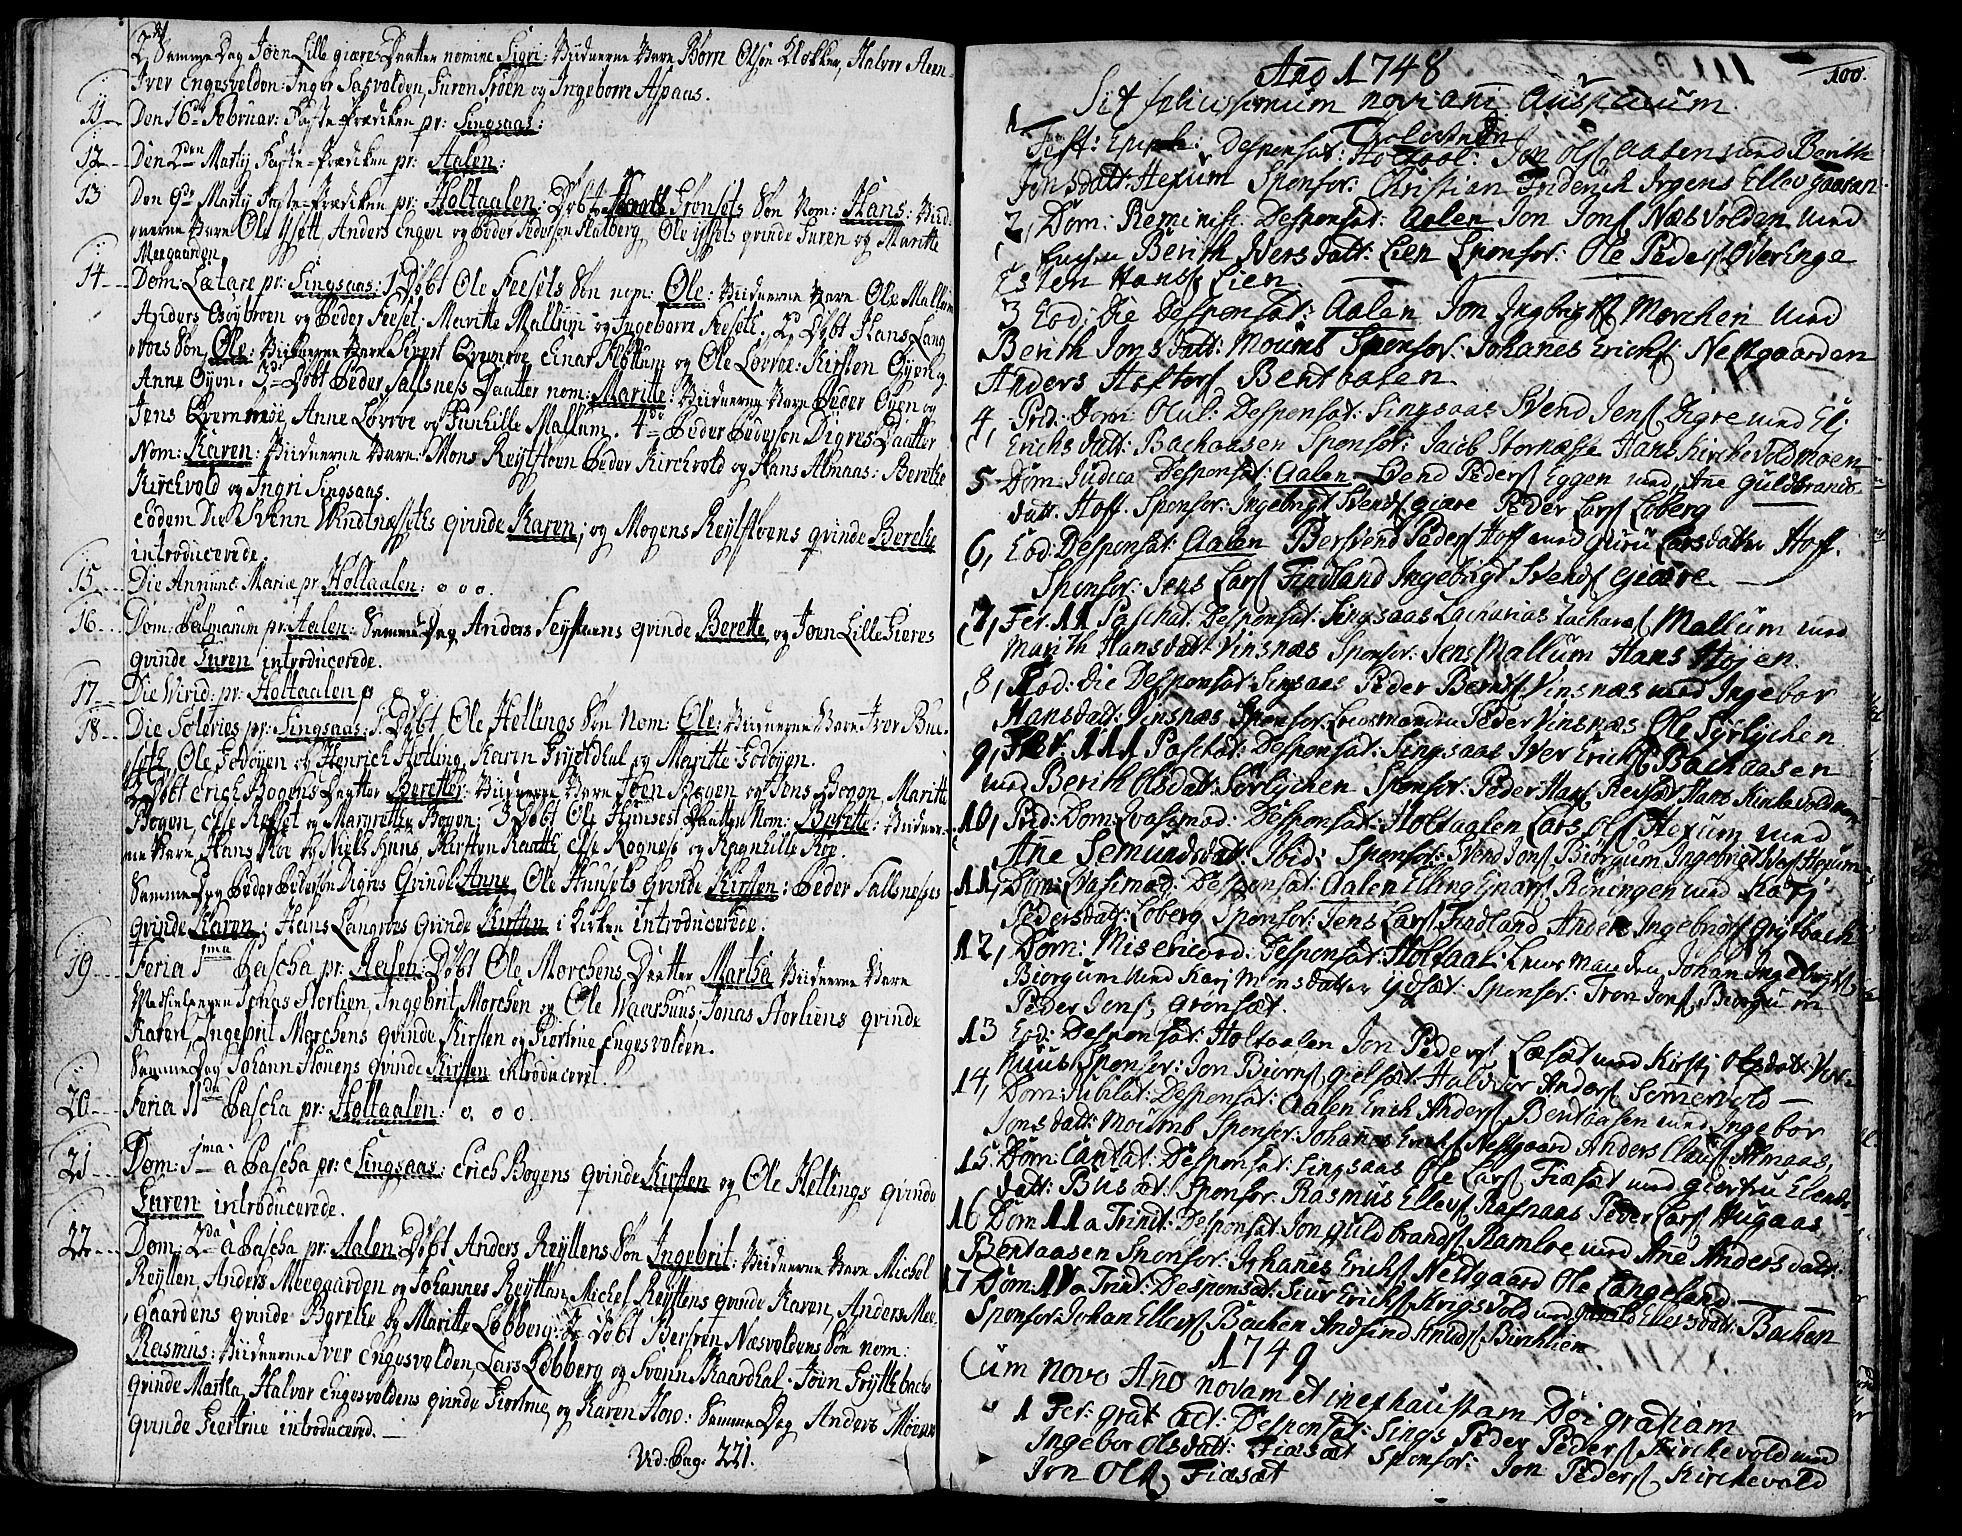 2. Samme Dag Joen Lille giæres Daatter nomine Sigri: Vidnerne Vare Børn Olsen Klokker, Halvor Steen
Iver Engesvolden: Inger Sasvolden, Guren Troen og Ingeborn Aspaas.
11 Den 16de Februar: Faste-Prædiken pr: Singsaas:
12 Den 2den Martij Faste-Prædiken pr: Aalen:
13 Den 9de Martij Faste-Prædiken pr: Holtaalen: Døbt Grønsets Søn Nom: Hans: Vid-
nerne Vare Ole Ysett, Anders Engen og Peder Pedersen Aalberg, Ole Yssets qvinde Guren og Maritte
Meegaarden
14 Dom: Lætare pr: Singsaas: 1 Døbt Ole Feesets Søn nom: Ole: Vidnerne Vare Ole Mallum
Anders Esøybroen og Peder Feeset: Maritte Mallum og Ingeborn Feesets. 2 Døbt Hans Lang
roes Søn, Ole: Vidnerne Vare Sivert Qvernmoe Einar Flottum og Ole Lovroe: Kirsten Øyen og
Anne Øyen. 3 Døbt Peder Sallsness Daatter nom: Maritte: Vidnerne Vare Peder Øyen og
Jens Qvernmoe, Anne Lovroe og Gunhille Mallum. 4 Peder Pedersøn Digres Daatter
Nom: Karen: Vidnerne Vare: Mons Reylstoen Peder Kirchvold og Hans Almaas: Berethe
Kirchvold og Ingri Singsaas.
Eodem Die Svenn Vindtnæssets qvinde Karen; og Mogens Reylstoens qvinde Berethe
introducerede.
15 Die Annunt: Mariæ pr. Holtaalen: o o o.
16 Dom: Palmarum pr: Aalen: Samme Dag Anders Feystuens qvinde Berette og Joen Lille Gieres
qvinde Guren introducerede.
17 Die Virid: pr: Holtaalen
18 Die Soleries pr: Singsaas: 1. Døbt Ole Hellings Søn Nom: Ole: Vidnerne Vare Iver Bu-
Ole Godøyen og Henrich Helling, Karen Grytdhal og Maritte Godøyen.
2 Døbt Erich Bogens Daatter Berette: Vidnerne Vare Joen Bogen og Jens Bogen, Maritte
Bogen, Else Resset og Margrette Bogen; 3 Døbt Ole Hunsets Daatter Nom: Berette: Vidner-
ne Vare, Hans Roe og Niels Hyns, Kirsten Raatte, Else Rognæs og Ragnhille Roe.
Samme Dag Peder Pedersøn Digres Qvinde Anne, Ole Hunsets Qvinde Kirsten: Peder Sallsnesses
qvinde Karen; Hans Langroes Qvinde Kirsten i Kirken introducerede.
19 Feria 1ma Pascha pr: Aalen: Døbt Ole Morchens Daatter Martha Vidnerne Vare
Jonas Horlien, Ingebrit Morchen og Ole Waarhuus; Jonas Horliens qvinde
Karen, Ingebrit Morchens qvinde Kirsten og Giertrue Engesvolden.
Samme Dag Johann Houens qvinde Kirsten introduceret.
20 Feria 11da Pascha pr: Holtaalen: o. o o.
21 Dom: 1ma a Pascha pr: Singsaas: Erich Bogens qvinde Kirsten og Ole Hellings qvinde
Guren introducerede.
22 Dom: 2da a Pascha pr: Aalen: Døbt Anders Reyttens Søn Ingebrit: Vidnerne Vare Michel
Reytten, Anders Meegaarden og Johannes Reyttan, Michel Reyttens qvinde Karen, Anders Mee-
gaardens qvinde Byrethe og Maritte Løbberg: 2 Døbt Bersven Næsvoldens Søn nom:
Rasmus: Vidnerne Iver Engesvolden, Lars Løbberg og Svenn Skaardhal. Joen Gryttebachs
qvinde Martha, Halvor Engesvoldens qvinde Giertrue og Karen How: Samme Dag Anders Moens
qvinde Giertrue introducered.
Vid: Pag: 221.
100.
Año 1748
Sit felicissimum novi anni auspicium
1 Fest: Epiph: Desponsat: Holtaal: Jon Ols Aasen med Berith
Jonsdatt: Hexum Sponsor: Christian Friderich Irgens Ellev gaaran
2, Dom: Reminisc. Desponsat: Aalen Jon Jons Næsvolden med
Berith Ivers datt: Lien Sponsor: Ole Peders Øver Enge
Esten Hans Lien
3 Eod: die Desponsat: Aalen Jon Ingbrigts Morchen med
Berith Jons datt: Moumb Sponsor. Johanes Erichs Nestgaarden
Anders Bentaasen
4, Prid: Dom: Ocul: Desponsat: Singsaas Svend Jens Digre med Eli
Erichs datt: Bachaasen Sponsor: Jacob Stornæsse Hans Kirchevoldmoen
5 Dom Judica Desponsat: Aalen Svend Peders Eggen med Ane Guldbrands-
datt. Hoff. Sponsor: Ingebrigt Svends Giære Peder Lars Løberg
6, Eod: Desponsat: Aalen Bersvend Peders Hoff med Guru Larsdatter Hoff.
Sponsor: Jens Lars Fladland Ingebrigt Svends Giære.
7, Fer: 11 Paschat: Desponsat: Singsaas Zacharias Zachars Mallum med
Marith Hansdatt: Vinsnæs Sponsor: Jens Mallum Hans Højen.
8, Eod: die Desponsat: Singsaas Peder Bernts Vinsnæs med Ingebor
Hansdatt: Vinsnæs Sponsor: Peder Vinsnæs Ole Syrlychen
9, Fer: 111 Paschat: Desponsat: Singsaas Iver Erichs Bachaasen
med Berith Olsdatt: Sørlychen Sponsor: Peder Hans Reset Hans Kirckevoldmoen
10, Prid: Dom: Qvasimod: Desponsat: Holtaalen Lars Ols Hexum med
Ane Semundsdatt: Ibid: Sponsor: Svend Jons Biörgum Ingebrigt Hexum
11, Dom: Qvasimod: Desponsat: Aalen Elling Einars Röningen med Kari
Pedersdatt: Løberg Sponsor: Jens Lars Fladland Anders Ingebrigts Grytbach
12, Dom: Misericord: Desponsat: Holtaal: Leutsmanden Johan Ingebrigts
Biörgum med Kari Monsdatter Ydsæt: Sponsor: Tron Jons Biörgum
Peder Jons, Grønsæt.
13 Eod: Desponsat: Holtaalen Jon Peders Læsæt med Kirsti Olsdatt: Var-
huus Sponsor: Jon Biørns Gielsæt: Haldvor Anders Somervold
14, Dom: Jubilat: Desponsat: Aalen Erich Anders Bentaasen med Ingebor
Jonsdatt: Moumb Sponsor: Johanes Erichs Nestgaard Anders Claus Almaas,
15 Dom: Cantat: Desponsat: Singsaas Ole Lars Fiæsæt med Giertru Elends-
datt: Busæt: Sponsor: Rasmus Ellevs Rafnaas Peder Lars Hugaas
16 Dom: 11 a Trinit: Desponsat: Jon Guldbrands Ramloe med Ane Anders datt:
Bentaasen Sponsor: Johanes Erichs Nestgaard Ole Langeland.
17 Dom: 1V a Trinit: Desponsat: Siur Erichs Krigsvold med Gunild Ellevsdatt: Bachen
Sponsor: Johan Ellevs Bachen Andfind Knuds Birchlien
1749
Cum novo Año novam et inexhaustam Dei gratiam
1 Fer: grat: act: Desponsat: Sings Peder Peders Kirchevold med
Ingebor Olsdatt: Fiæsæt Sponsor: Jon Peders Kirchevold
Jon Ols Fiæsæt